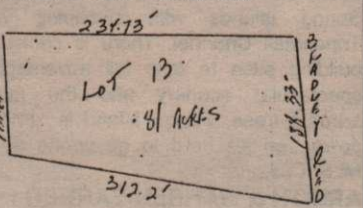 234.73'
LOT 13
.81 ACRES
138.33'
BRADLEY ROAD
312.2'